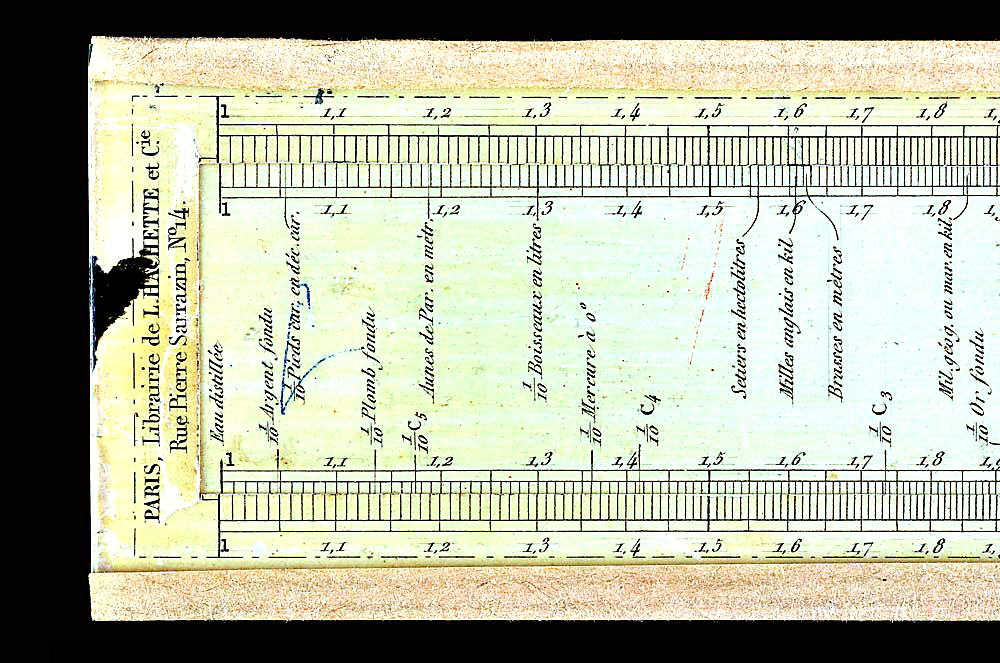 PARIS, Librairie de L. HACHETTE et C.ie
Rue Pierre Sarrazin, N.º 14.
1 1,1 1,2 1,3 1,4 1,5 1,6 1,7 1,8
1 1,1 1,2 1,3 1,4 1,5 1,6 1,7 1,8
Eau distillée
1/10 Argent fondu
1/10 Pieds car. en déc. car.
1/10 Plomb fondu
1/10 C5
Aunes de Par. en mètr.
1/10 Boisseaux en litres
1/10 Mercure à 0°
1/10 C4
Setiers en hectolitres
Milles anglais en kil.
Brasses en mètres
1/10 C3
Mil. géog. ou mar. en kil.
1/10 Or fondu
1 1,1 1,2 1,3 1,4 1,5 1,6 1,7 1,8
1 1,1 1,2 1,3 1,4 1,5 1,6 1,7 1,8